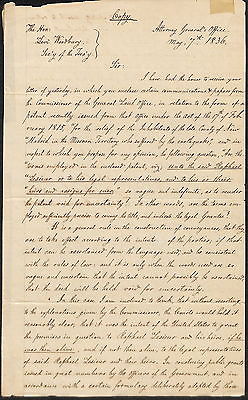 Copy
The Hon: Attorney General's Office
Levi Woodbury May 7th 1836.
Secy of the Treasy
Sir:
I have had the honor to receive your
letter of yesterday, in which you enclose certain communications & papers from
the Commissioner of the General Land Office, in relation to the form of a
patent recently issued from that Office under the act of the 17th of Feb-
ruary 1815. "For the relief of the Inhabitants of the late County of New
Madrid in the Missouri Territory who suffered by the earthquakes" and in
respect to which you propose for my opinion, the following question, "Are the
terms employed in the enclosed patent, which grants the land "Raphael
Lesieur or to his legal representatives, and to his or their
heirs and assigns for ever" so vague and indefinite, as to render
the patent void for uncertainty? In other words, are the terms em-
ployed sufficiently precise to convey the title, and indicate the legal Grantee?
It is a general rule in the construction of conveyances, that they
are to take effect according to the intents of the parties, if that
intent can be ascertained from the language used, and be consistent
with the rules of law. and it is only when the words used are so
vague and uncertain that the intent cannot possibly be ascertained
that the deed will be held void for uncertainty.
In this case I am inclined to think that without resorting
to the explanations given by the Commissioner, the Courts would hold it
reasonably clear, that it was the intent of the United States to grant
the premises in question to Raphael Lesieur and his heirs, if he
was then alive; and if not then alive, to the legal representatives
of said Raphael Lesieur and their heirs. In construing public grants
issued in great numbers by the Officers of the Government, and in
accordance with a certain formulary deliberately adopted by them